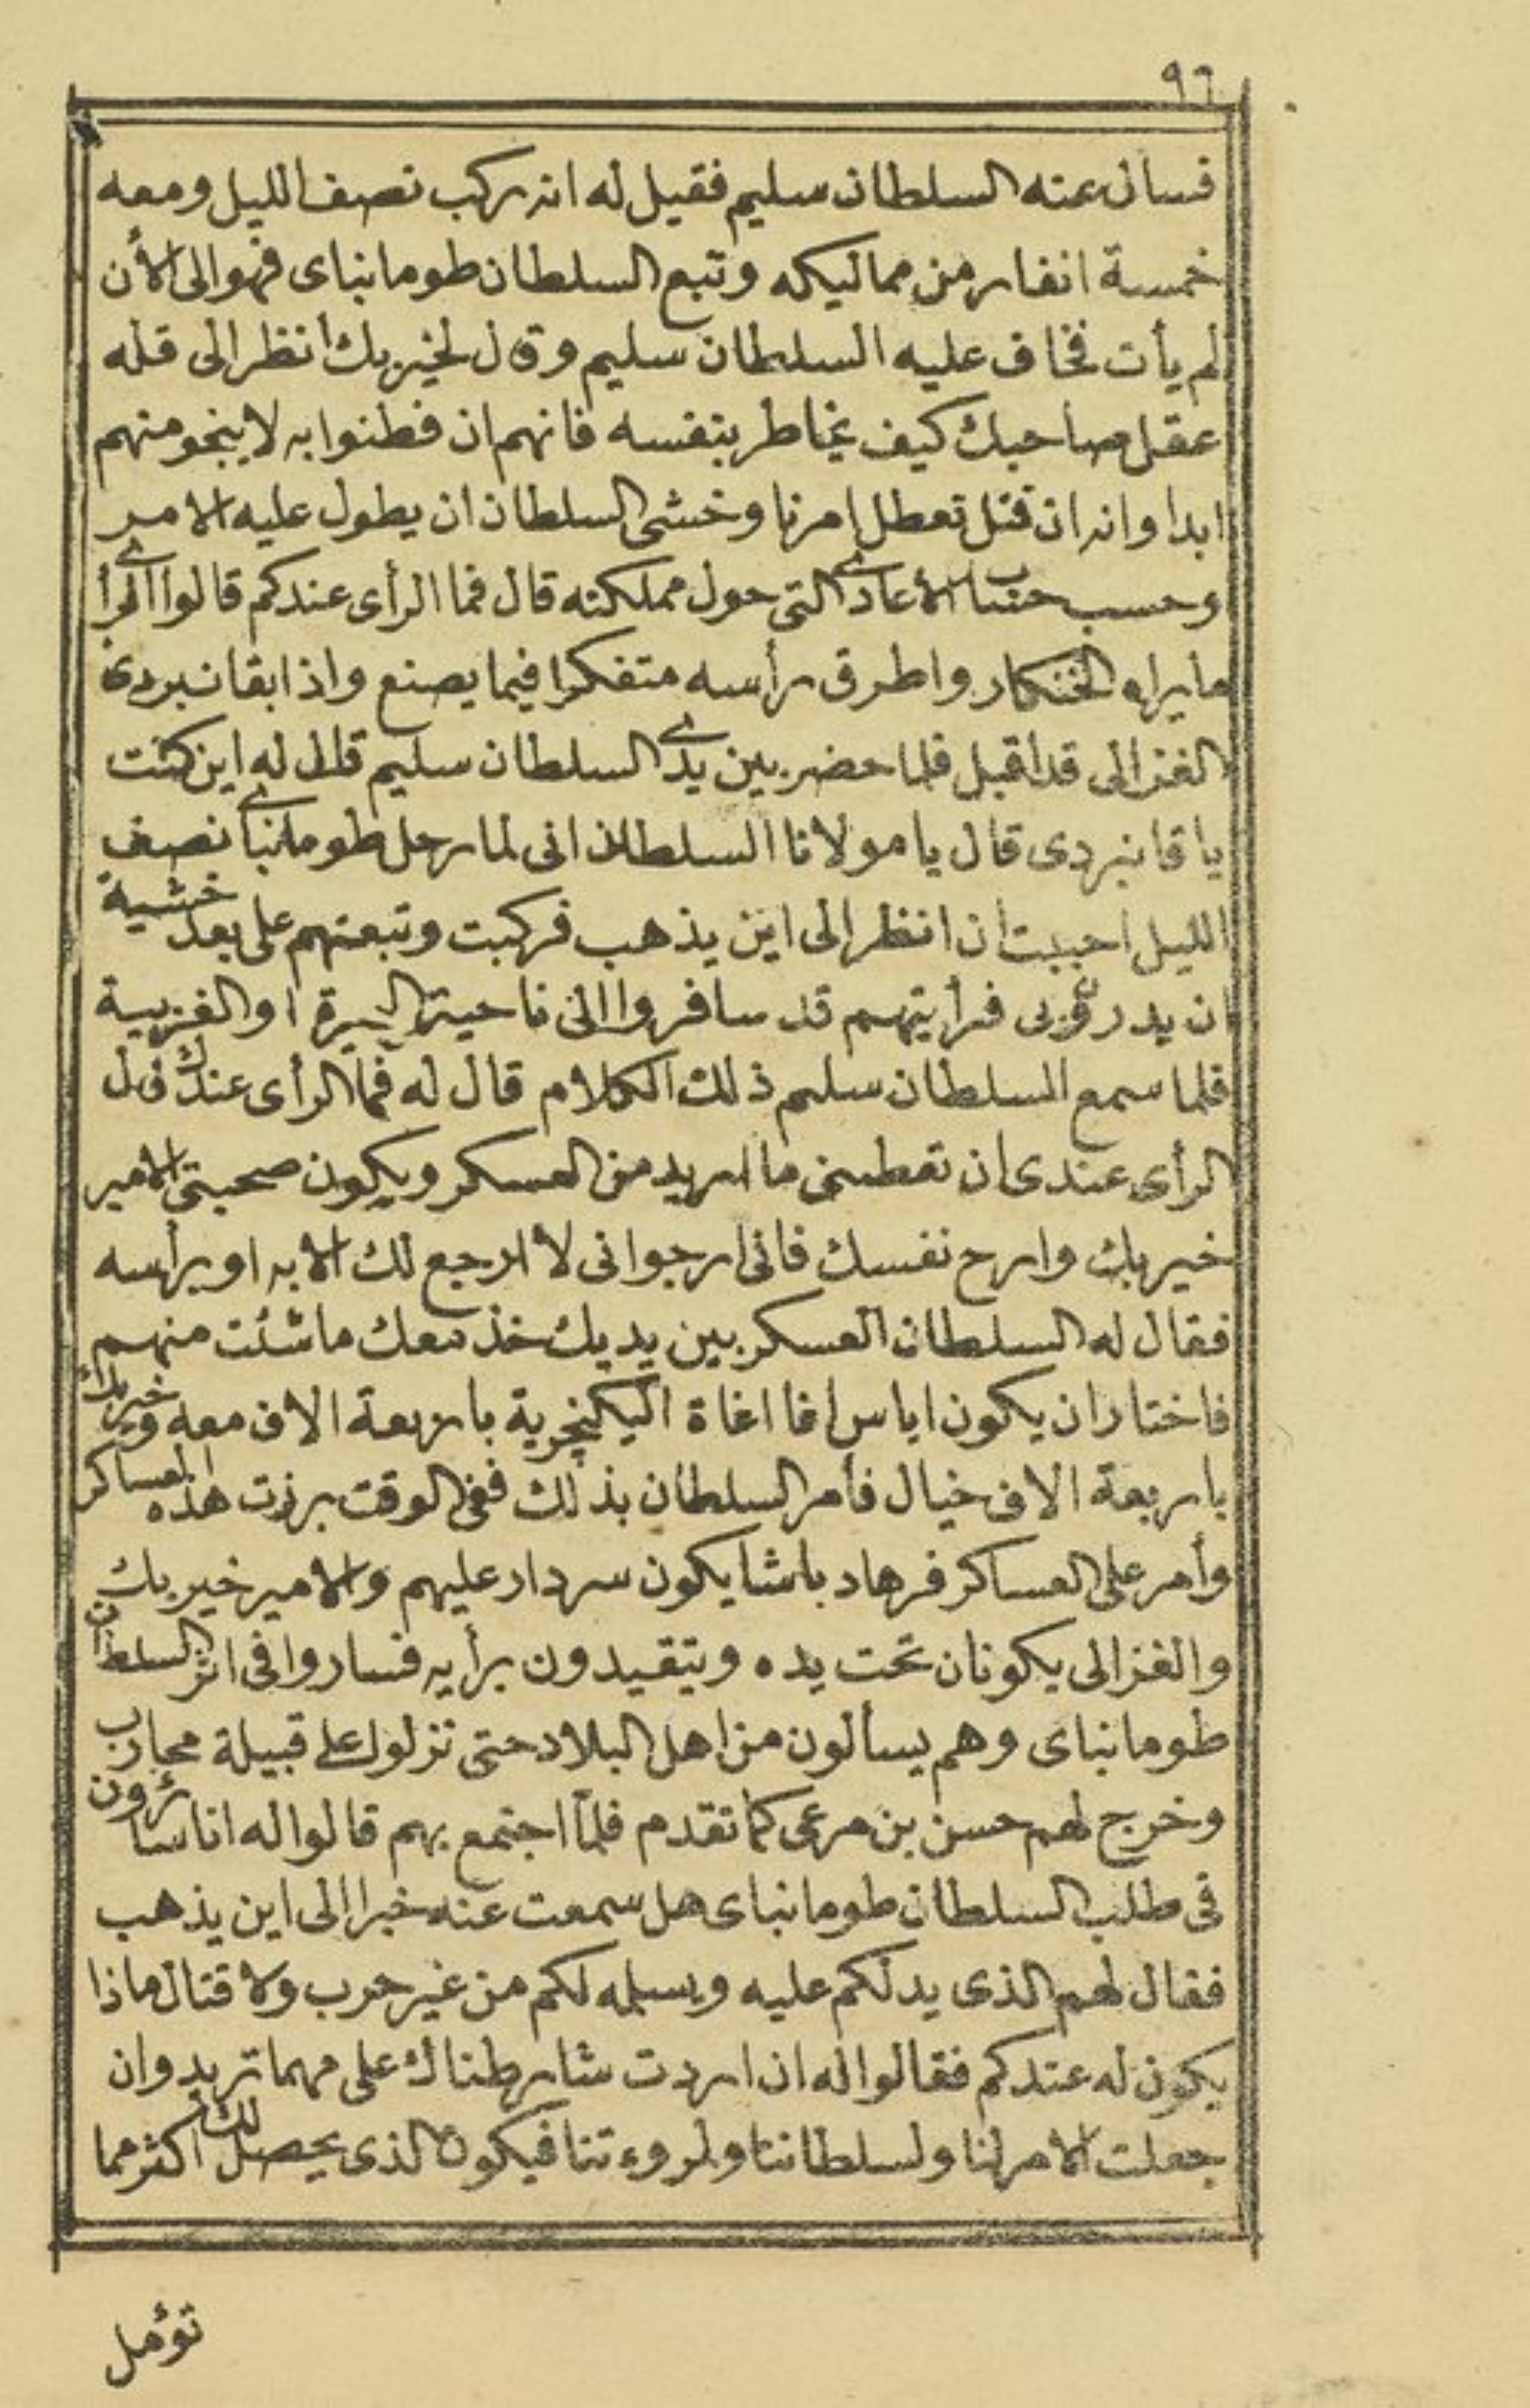 ٩٦
فسال عنه السلطان سليم فقيل له انه ركب نصف الليل ومعه
خمسة انفار من مماليكه وتبع السلطان طومانباى فهو الى الأن
لم يأت فخاف عليه السلطان سليم وقال لخير بك أنظر الى قله
عقل صاحبك كيف يخاطر بنفسه فانهم ان فطنوا به لا ينجو منهم
ابدا وانه ان قتل تعطل امرنا وخشى السلطان ان يطول عليه الامر
وحسب حساب الأعادى التى حول مملكته قال فما الرأى عندكم قالوا الرأى
ما يراه الخنكار واطرق برأسه متفكرا فيما يصنع واذا بقانبردى
الغزالى قد اقبل فلما حضر بين يدى السلطان سليم قال له اين كنت
يا قانبردى قال يا مولانا السلطان انى لما رحل طومانباى نصف
الليل احببت ان انظر الى اين يذهب فركبت وتبعتهم على بعد خشية
ان يدرو بى فرأيتهم قد سافروا الى ناحية البحيرة او الغربية
فلما سمع السلطان سليم ذلك الكلام قال له فما الرأى عندك قال
الرأى عندى ان تعطينى ما اريد من العسكر ويكون صحبتى الامير
خير بك وارح نفسك فانى ارجو انى لا ارجع لك الا به او برأسه
فقال له السلطان العسكر بين يديك خذ معك ما شئت منهم
فاختار ان يكون اياس اغا اغاة اليكنچرية باربعة الاف معه وخير بك
باربعة الاف خيال فأمر السلطان بذلك ففى الوقت برزت هذه العساكر
وأمر على العساكر فرهاد باشا يكون سردار عليهم والامير خير بك
والغزالى يكونان تحت يده ويتقيدون برأيه فساروا فى اثر السلطان
طومانباى وهم يسألون من اهل البلاد حتى نزلوا على قبيلة محارب
وخرج لهم حسن بن مرعى كما تقدم فلما اجتمع بهم قالوا له انا سائرون
فى طلب السلطان طومانباى هل سمعت عنه خبرا الى اين يذهب
فقال لهم الذى يدلكم عليه ويسلمه لكم من غير حرب ولا قتال ماذا
يكون له عندكم فقالوا له ان اردت شارطناك على مهما تريد وان
جعلت الامر لنا ولسلطاننا ولمروءتنا فيكون الذى يحصل لك اكثر مما
تؤمل